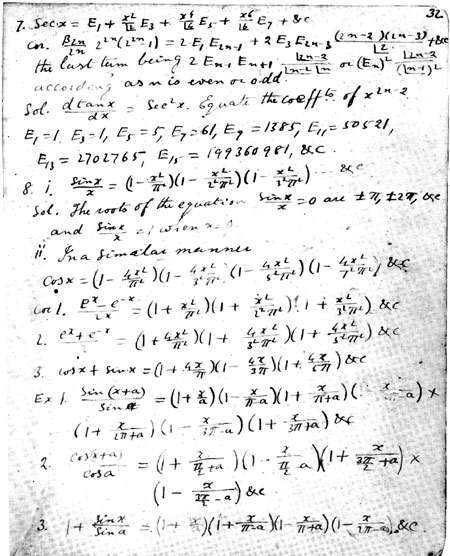 32
7. Sec x = E₁ + x²/|2 E₃ + x⁴/|4 E₅ + x⁶/|6 E₇ + &c
Cor. B₂ₙ/2n 2²ⁿ(2²ⁿ-1) = 2E₁E₂ₙ₋₁ + 2E₃E₂ₙ₋₃ (2n-2)(2n-3)/|2 + &c
the last term being 2Eₙ₋₁Eₙ₊₁ |2n-2/|n-2 |n or (Eₙ)² |2n-2/(|n-1)²
according as n is even or odd.
Sol. d tan x/dx = Sec²x. Equate the coeff^ts of x²ⁿ⁻²
E₁=1, E₃=1, E₅=5, E₇=61, E₉=1385, E₁₁=50521,
E₁₃=2702765, E₁₅=199360981, &c.
8. i. Sin x/x = (1 - x²/π²)(1 - x²/2²π²)(1 - x²/3²π²) &c
Sol. The roots of the equation Sin x/x = 0 are ±π, ±2π, &c
and Sin x/x = 1 when x = 0.
ii. In a similar manner
Cos x = (1 - 4x²/π²)(1 - 4x²/3²π²)(1 - 4x²/5²π²)(1 - 4x²/7²π²) &c
Cor 1. (eˣ - e⁻ˣ)/2x = (1 + x²/π²)(1 + x²/2²π²)(1 + x²/3²π²) &c
2. eˣ + e⁻ˣ = (1 + 4x²/π²)(1 + 4x²/3²π²)(1 + 4x²/5²π²) &c
3. cos x + sin x = (1 + 4x/π)(1 - 4x/3π)(1 + 4x/5π) &c
Ex 1. Sin(x+a)/Sin a = (1 + x/a)(1 - x/π-a)(1 + x/π+a)( x -a) ×
(1 + x/2π+a)(1 - x/3π-a)(1 + x/3π+a) &c
2. Cos(x+a)/cos a = (1 + x/π/2+a)(1 - x/π/2-a)(1 + x/3π/2+a) ×
(1 - x/3π/2-a) &c
3. 1 + Sin x/Sin a = (1 + x)(1 + x/π-a)(1 - x/π+a)(1 - x/2π-a) &c.